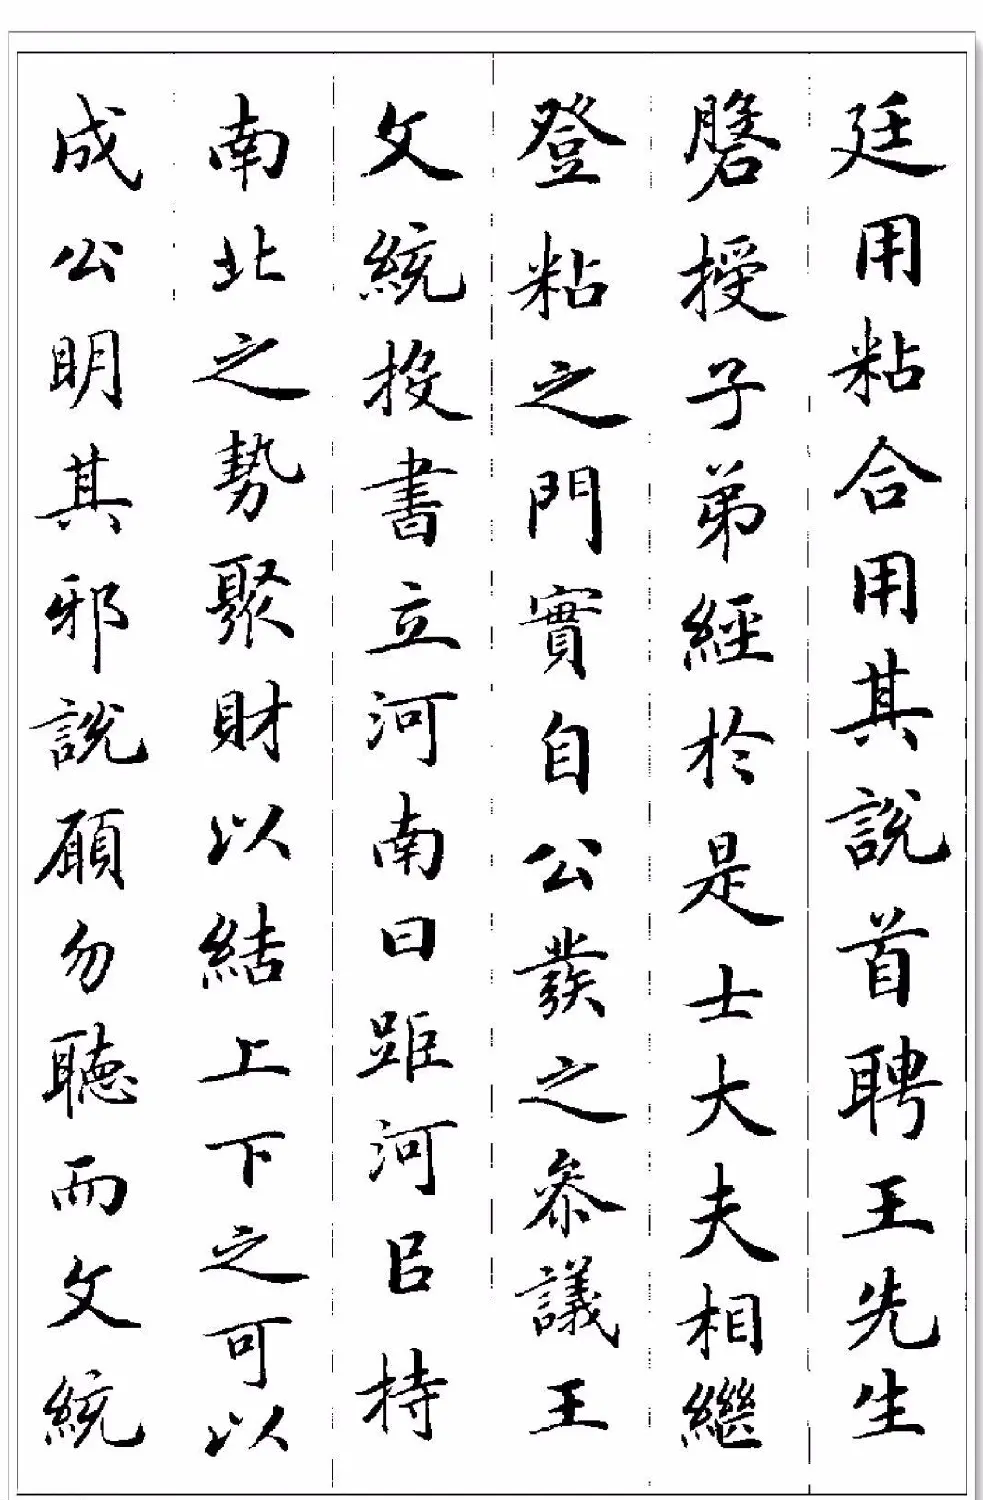 廷用粘合用其說首聘王先生
贍授子弟經於是士大夫相繼
登粘之門實自公發之參議王
文統投書立河南曰距河㠯持
南北之勢聚財以結上下之可以
成公明其邪說願勿聽而文統